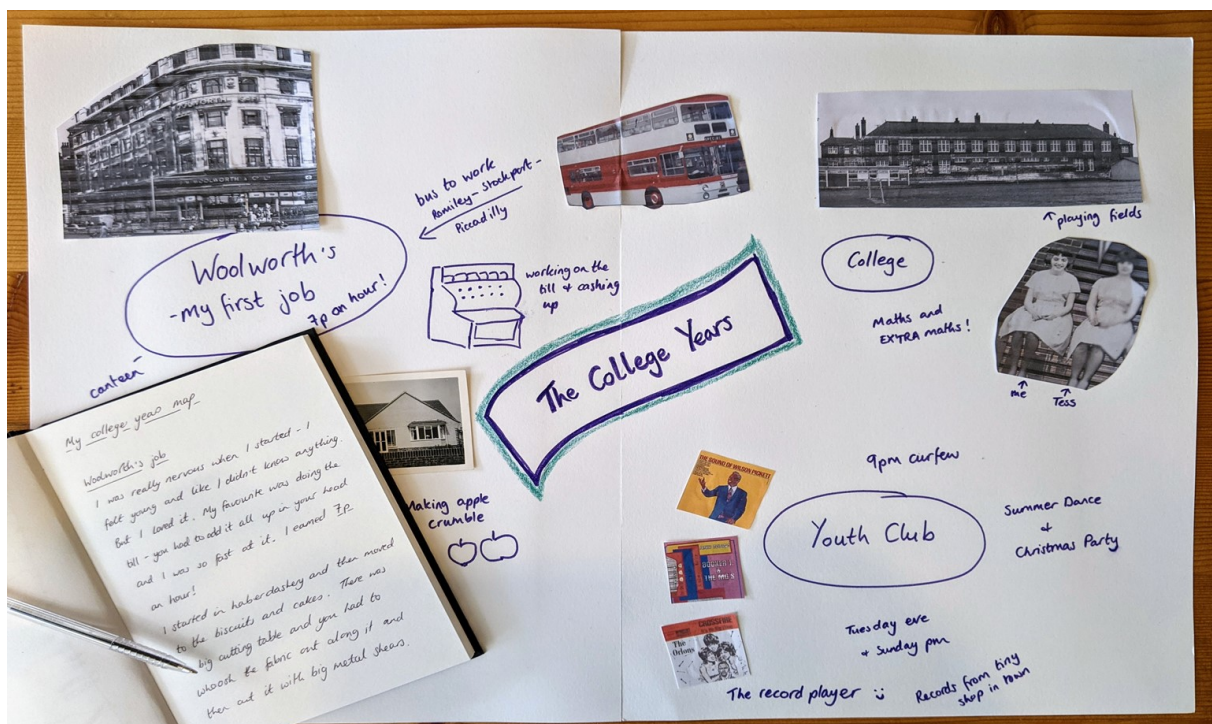 Woolworth's
-my first job
7p an hour!
canteen
bus to work
Romiley-Stockport-
Piccadilly
working on the
till & cashing
up
The College Years
playing fields
College
Maths and
EXTRA maths!
me
Tess
Making apple
crumble
9pm curfew
Youth Club
Summer Dance
&
Christmas Party
Tuesday eve
& Sunday pm
The record player
Records from tiny
shop in town
THE SOUND OF WILSON PICKETT
BOOKER T
& THE MG'S
The
Orlons
My college years map
Woolworth's job
I was really nervous when I started - I
felt young and like I didn't know anything.
But I loved it. My favourite was doing the
till - you had to add it all up in your head
and I was so fast at it. I earned 7p
an hour!
I started in haberdashery and then moved
to the biscuits and cakes. There was
big cutting table and you had to
whoosh the fabric out along it and
then cut it with big metal shears.